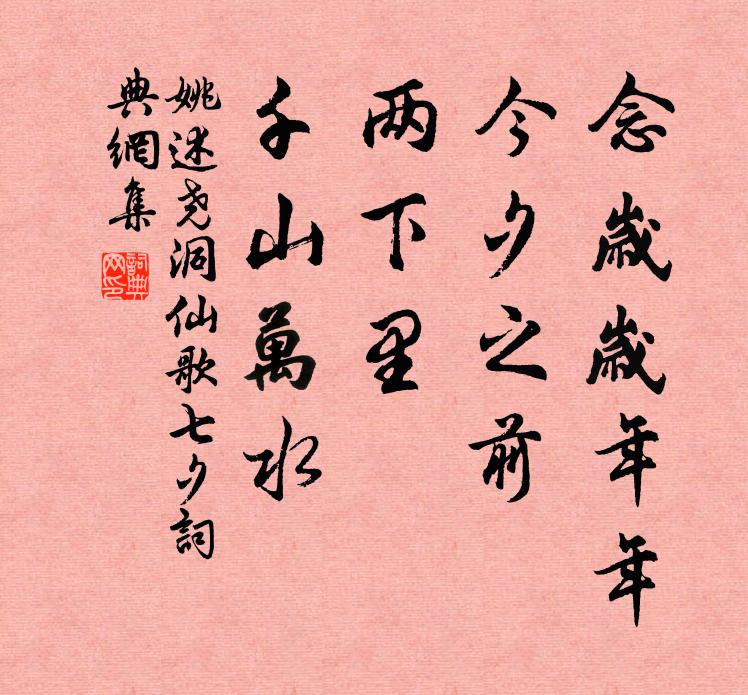 念歲歲年年
今夕之前
两下里
千山萬水
姚述尧洞仙歌七夕詞
典網集
詞典网印